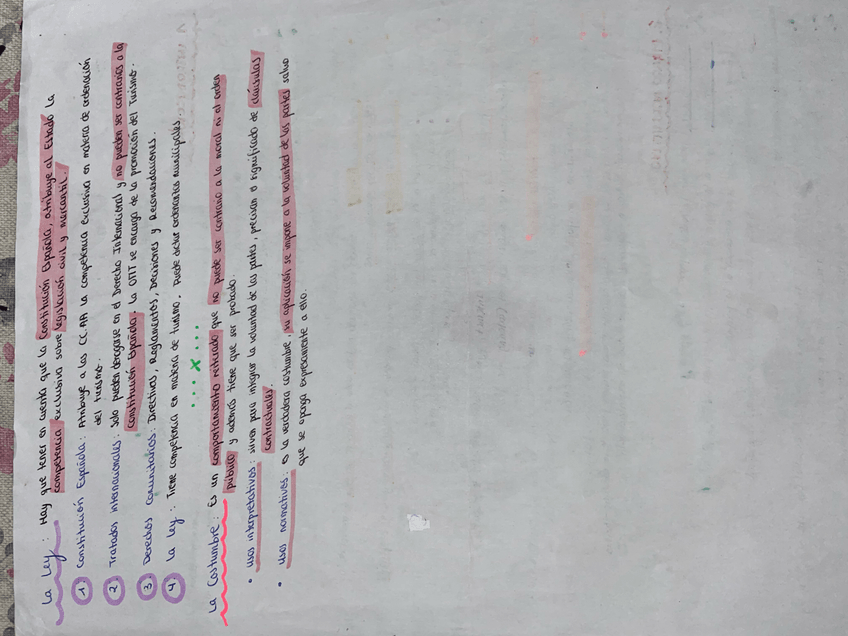 La Ley: Hay que tener en cuenta que la Constitución Española, atribuye al Estado la
competencia exclusiva sobre legislación civil y mercantil.
1 Constitución Española: Atribuye a las CC.AA la competencia exclusiva en materia de ordenación
del turismo.
2 Tratados internacionales: Solo pueden derogarse en el Derecho Internacional y no pueden ser contrarios a la
constitución Española. La OMT se encarga de la promoción del Turismo.
3 Derechos comunitarios: Directivas, Reglamentos, Decisiones y Recomendaciones.
4 La ley: Tiene competencia en materia de turismo. Puede dictar ordenanzas municipales.
... x ...
La Costumbre: Es un comportamiento reiterado que no puede ser contrario a la moral ni al orden
público y además tiene que ser probado.
• Usos interpretativos: sirven para integrar la voluntad de las partes, precisan el significado de cláusulas
contractuales.
• Usos normativos: es la verdadera costumbre, su aplicación se impone a la voluntad de las partes salvo
que se oponga expresamente a ello.